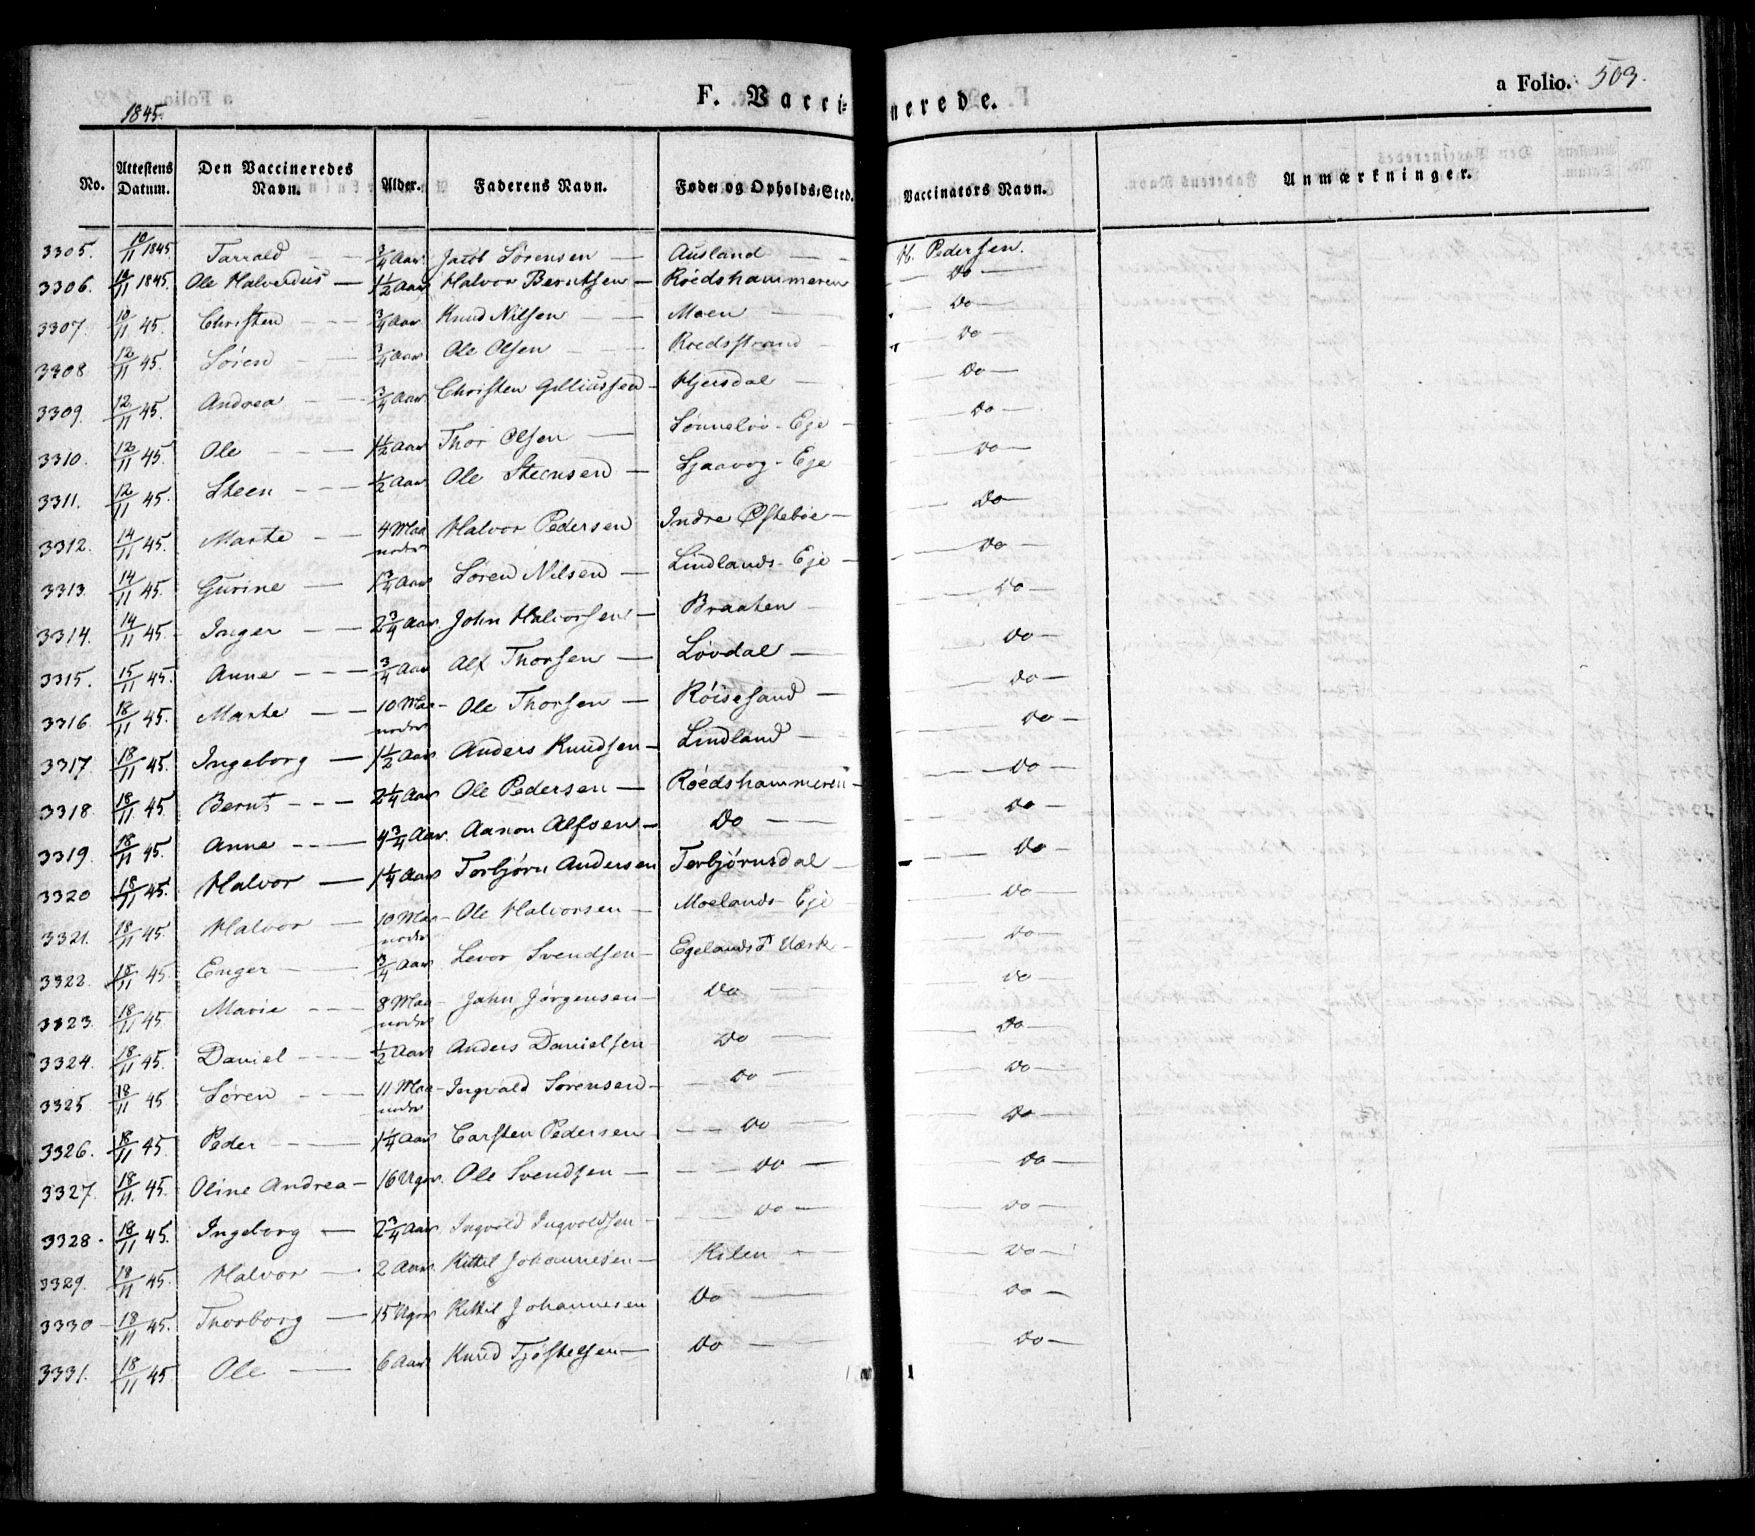 1845.
F. Vaccinerede.
a Folio. 503.
No. | Attestens Datum. | Den Vaccineredes Navn. | Alder. | Faderens Navn. | Føde- og Opholds-Sted. | Vaccinators Navn. | Anmærkninger.
3305. 10/11 1845. Tarrald — — 3/4 Aar Jacob Sørensen — Ausland — — H. Pedersen.
3306. 10/11 1845. Ole Halvordus — 1 1/2 Aar Halvor Berntsen — Röedshammeren — Do —
3307. 10/11 45. Christen — — — 3/4 Aar Knud Nilsen — — Moen — — Do —
3308 12/11 45. Sören — — 3/4 Aar Ole Olsen — — Roedsstrand — — Do —
3309. 12/11 45. Andrea — — 3/4 Aar Christen Gilliussen — Hjersdal — — Do —
3310. 12/11 45. Ole — — — 1 1/2 Aar Thor Olsen — Sønneløv - Eje — Do —
3311. 12/11 45. Steen — — — 1/2 Aar Ole Steensen — Sjaavog - Eje — Do —
3312. 14/11 45. Marte — — 4 Maanoder Halvor Pedersen Indre Øftebøe — — Do —
3313. 14/11 45. Gurine — 1 3/4 Aar Søren Nilsen — Lindlands - Eje — — Do —
3314. 14/11 45. Inger — — 2 3/4 Aar. John Halvorsen — Braaten — — Do
3315. 15/11 45. Anne — — — 3/4 Aar Alf Thorsen — Løvdal — — Do —
3316. 18/11 45. Marte — — 10 Maanoder Ole Thorsen — Röisesand — — Do —
3317. 18/11 45. Ingeborg — 1 1/2 Aar Anders Knudsen — Lindland — — Do —
3318. 18/11 45. Bernt — — — 2 1/4 Aar Ole Pedersen — Röedshammeren — — Do —
3319. 18/11 45. Anne — — — 4 3/4 Aar. Aanon Alfsen — Do — — Do —
3320 18/11 45. Halvor — 1 1/4 Aar Torbjörn Andersen Torbjørnsdal — — Do —
3321. 18/11 45. Halvor — 10 Maanoder Ole Halvorsen — Moelands - Eje — Do —
3322. 18/11 45 Enger — — 3/4 Aar Levor Svendsen — Egelands Værk — Do —
3323. 18/11 45. Marie — — — 8 Maanoder John Jörgensen — Do — — Do —
3324. 18/11 45. Daniel — — — 1/2 Aar Anders Danielsen Do — — Do —
3325 18/11 45 Søren — — — 11 Maanoder Ingvald Sørensen — — Do — — Do —
3326. 18/11 45. Peder — — — 1 1/4 Aar Carsten Pedersen — — Do — — Do —
3327. 18/11 45. Oline Andrea — 16 Uger. Ole Svendsen — — — Do — — Do —
3328. 18/11 45. Ingeborg — 2 3/4 Aar Ingvold Ingvoldsen — — Do — — Do —
3329. 18/11 45. Halvor — 2 Aar. Kittil Johannesen — Kilen — — Do —
3330 18/11 45. Thorborg — 15 Uger Kittil Johannesen Do — — Do —
3331. 18/11 45 Ole — 6 Aar Knud Tjøstelsen — Do — — Do —